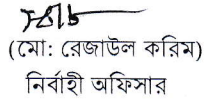 (মো: রেজাউল করিম)
নির্বাহী অফিসার